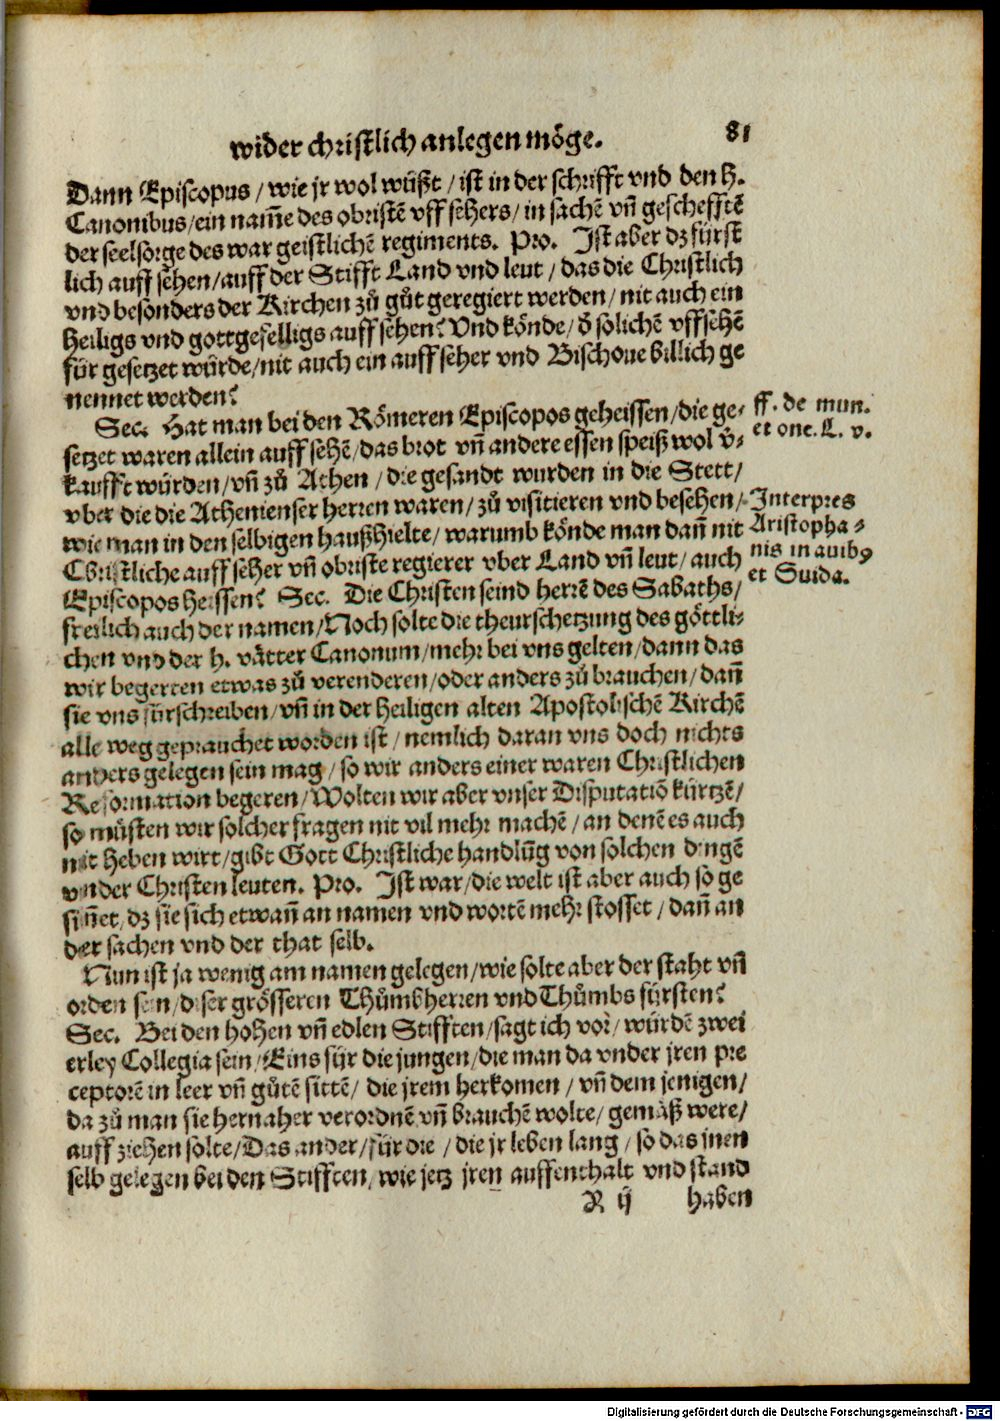 wider christlich anlegen möge. 81
Dann Episcopus / wie jr wol wüßt / ist in der schrifft vnd den h.
Canonibus / ein nam̃e des obristẽ vff sehers / in sachẽ vñ geschefftẽ
der seelsorge des war geistlichẽ regiments. Pro. Jst aber dz fürst
lich auff sehen / auff der Stifft Land vnd leut / das die Christlich
vnd besonders der Kirchen zů gůt geregiert werden / nit auch ein
heiligs vnd gottgefelligs auff sehen? Vnd könde / õ solichẽ vffsehẽ
für gesetzet würde / nit auch ein auff seher vnd Bischoue billich ge
nennet werden?
Sec. Hat man bei den Römeren Episcopos geheissen / die ge-
setzet waren allein auff sehẽ / das brot vñ andere essen speiß wol v̈-
kaufft würden / vñ zů Athen / die gesandt wurden in die Stett /
vber die die Athenienser herren waren / zů visitieren vnd besehen /
wie man in den selbigen haußhielte / warumb könde man dañ nit
Christliche auff seher vñ obriste regierer vber Land vñ leut / auch
Episcopos heissen? Sec. Die Christen seind herrẽ des Sabaths /
freilich auch der namen / Noch solte die theurschetzung des göttli-
chen vnd der h. vätter Canonum / mehr bei vns gelten / dann das
wir begerten etwas zů verenderen / oder anders zů brauchen / dañ
sie vns fürschreiben / vñ in der heiligen alten Apostolischẽ Kirchẽ
alle weg geprauchet worden ist / nemlich daran vns doch nichts
anders gelegen sein mag / so wir anders einer waren Christlichen
Reformation begeren / Wolten wir aber vnser Disputatiõ kürtzẽ /
so müsten wir solcher fragen nit vil mehr machẽ / an denẽ es auch
nit heben wirt / gibt Gott Christliche handlũg von solchen dingẽ
vnder Christen leuten. Pro. Jst war / die welt ist aber auch so ge
siñet / dz sie sich etwañ an namen vnd wortẽ mehr stosset / dañ an
der sachen vnd der that selb.
Nun ist ja wenig am namen gelegen / wie solte aber der staht vñ
orden sein / diser grösseren Thůmbherren vnd Thůmbs fürsten?
Sec. Bei den hohen vñ edlen Stifften / sagt ich vor / würdẽ zwei
erley Collegia sein / Eins für die jungen / die man da vnder jren pre
ceptorẽ in leer vñ gůtẽ sittẽ / die jrem herkomen / vñ dem jenigen /
da zů man sie hernaher verordnẽ vñ brauchẽ wolte / gemäß were /
auff ziehen solte / Das ander / für die / die jr leben lang / so das jnen
selb gelegen bei den Stifften / wie jetz jren auffenthalt vnd stand
R ij haben
ff. de mun.
et one. L. v.
Interpres
Aristopha-
nis in auibꝰ
et Suida.
Digitalisierung gefördert durch die Deutsche Forschungsgemeinschaft - DFG